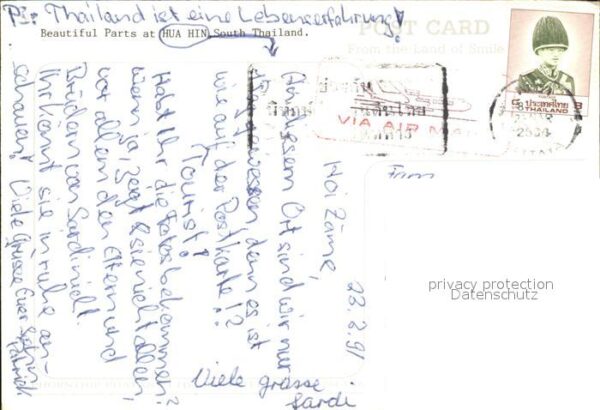 P.S. Thailand ist eine Lebenserfahrung!
Beautiful Parts at HUA HIN South Thailand.
POST CARD
From the Land of Smile
ประเทศไทย
THAILAND
VIA AIR MAIL
2534
23.2.91
Hoi Zäme,
An diesem Ort sind wir nur
gewesen, denn es ist
wie auf der Postkarte!?
Tourist!
Habt Ihr die Fotos bekommen?
Wenn ja, zeigt sie nicht allen,
vor allem den Eltern und
Brüdern von Sardi nicht.
Ihr könnt sie in Ruhe an-
schauen! Viele Grüsse Euer Sohn
Patrick
Viele grüsse
Sardi
From
privacy protection
Datenschutz